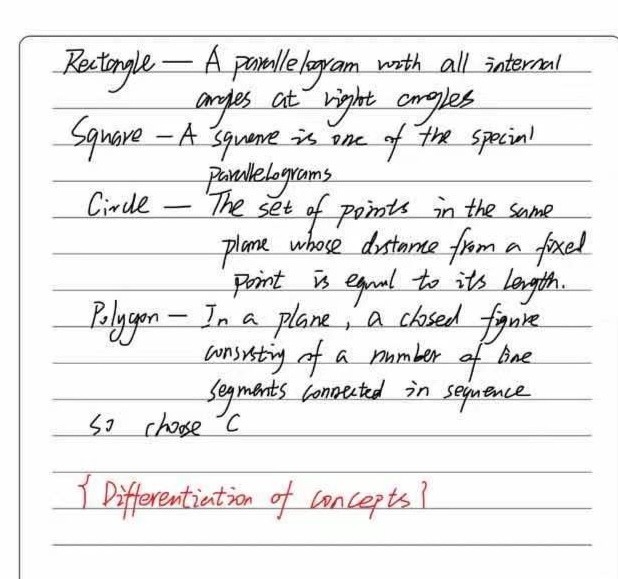 Rectangle — A parallelogram with all internal
angles at right angles
Square — A square is one of the special
parallelograms
Circle — The set of points in the same
plane whose distance from a fixed
point is equal to its length.
Polygon — In a plane, a closed figure
consisting of a number of line
segments connected in sequence
so choose C
{Differentiation of concepts}